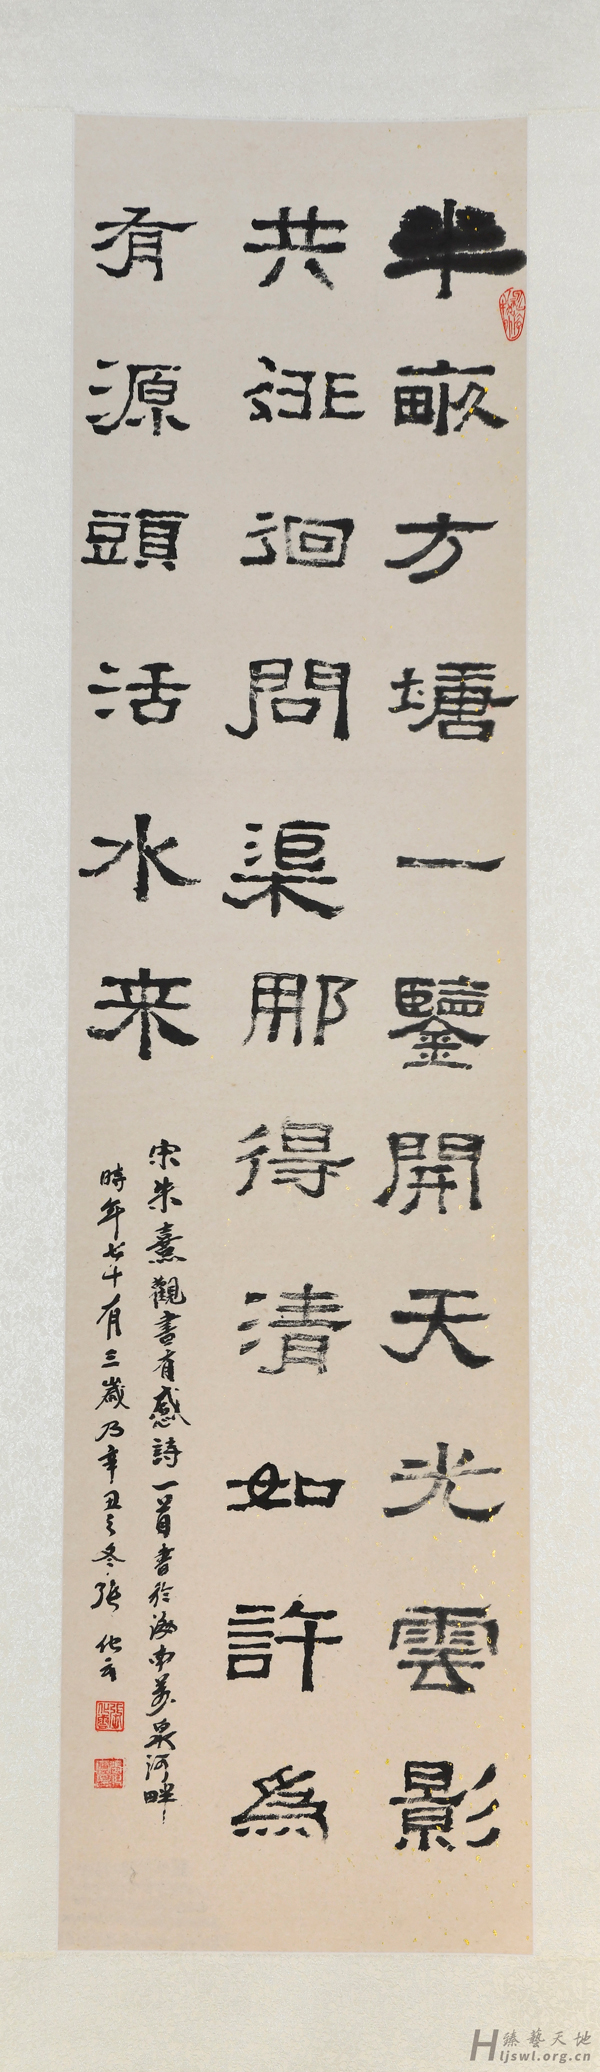 半畝方塘一鑒開天光雲影
共徘徊問渠那得清如許為
有源頭活水来
宋朱熹觀書有感詩一首書於海南萬泉河畔
時年七十有三歲乃辛丑之冬張化云
臻藝天地
Hljswl.org.cn